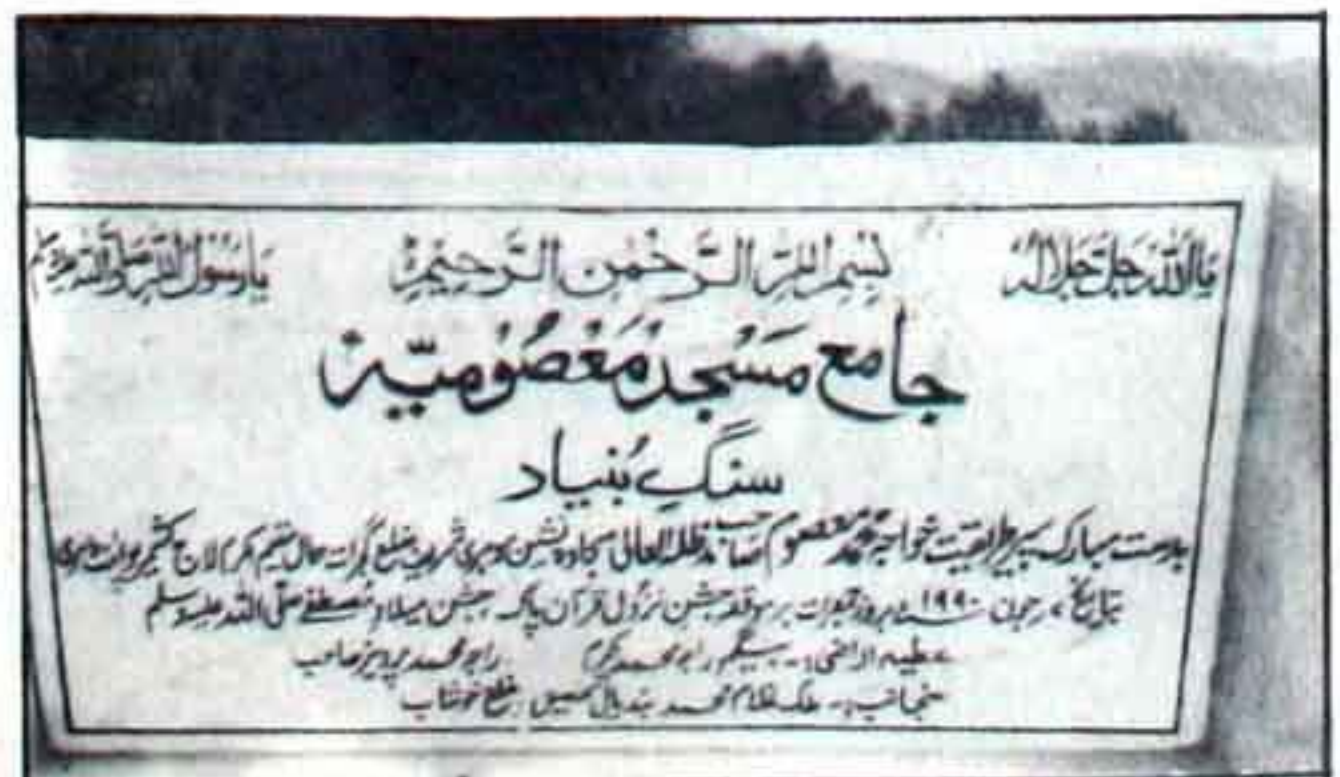 یااللہ جل جلالہ بِسْمِ اللہِ الرَّحْمٰنِ الرَّحِیْمِ یا رسول اللہ صلی اللہ علیہ وسلم
جامع مَسْجِد مَعْصُومِیّہ
سنگِ بُنیاد
بدست مبارک پیر طریقت خواجہ محمد معصوم صاحب مدظلہ العالی سجادہ نشین موہری شریف ضلع گجرات حال مقیم کرم لاج کشمیر پوائنٹ مری
بتاریخ ۷ جون ۱۹۹۰ء بروز جمعرات برموقعہ جشن نزول قرآن پاک، جشن میلاد مصطفےٰ صلی اللہ علیہ وسلم
عطیہ اراضی:۔ بیگم راجہ محمد اکرم راجہ محمد پرویز صاحب
منجانب:۔ ملک غلام محمد بندیال ضلع خوشاب